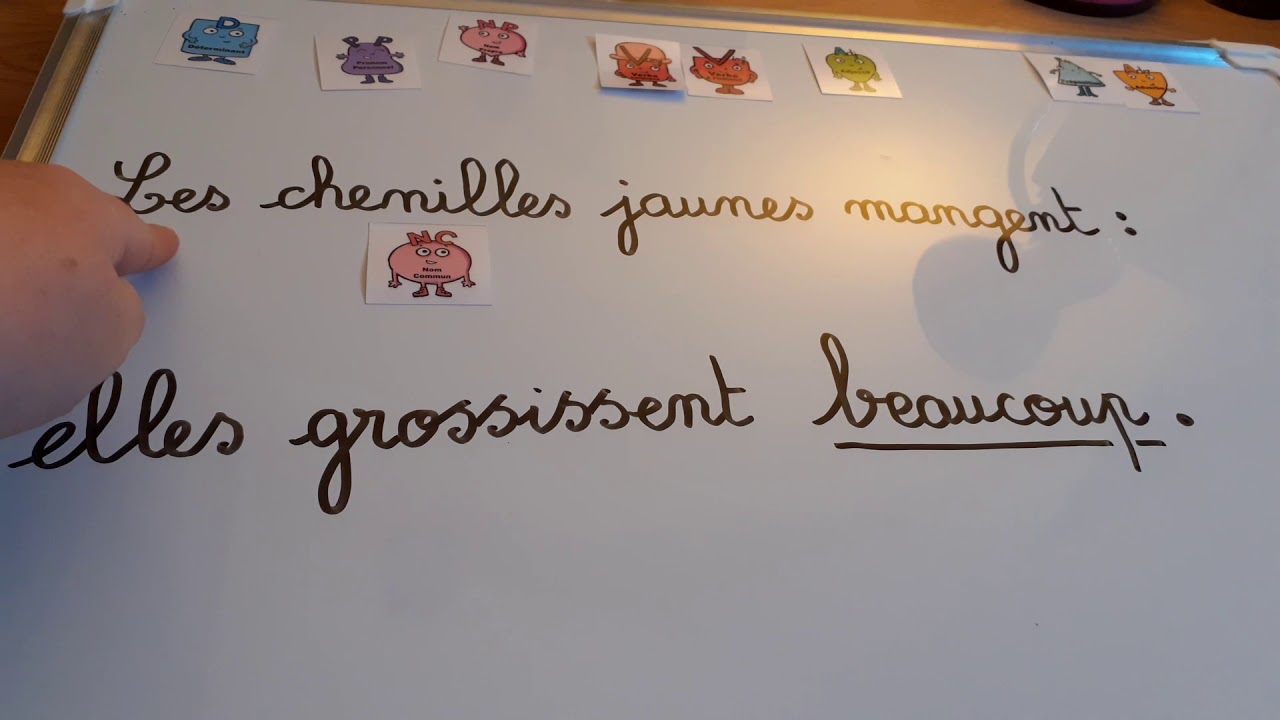 D NP
Déterminant Pronom Personnel Nom Verbe Verbe
Les chenilles jaunes mangent :
NC
Nom Commun
elles grossissent beaucoup.